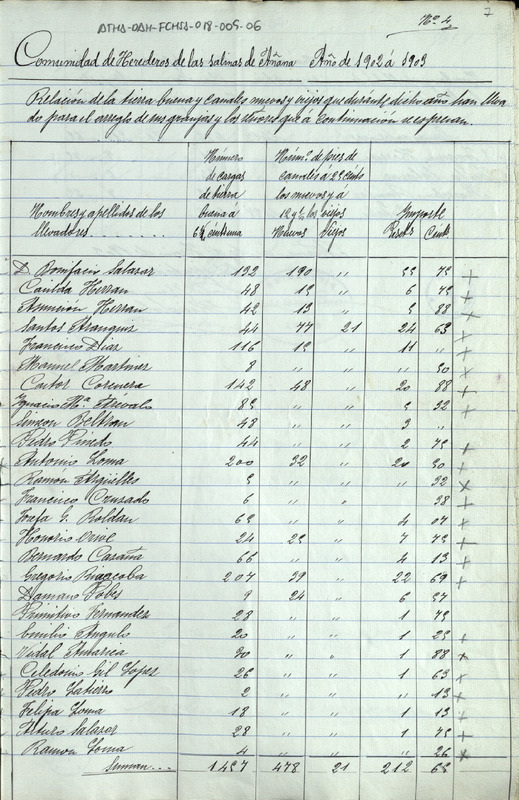 ATHA-DAH-FCHSA-018-005-06
Nº 4
7
Comunidad de Herederos de las salinas de Añana Año de 1902 á 1903
Relación de la tierra buena y canales nuevos y viejos que durante dicho año han lleva
do para el arreglo de sus granjas y los valores que a continuación se expresan.
Nombres y apellidos de los llevadores Número de cargas de tierra buena á 6¼ centimos Núm.º de pies de canales á 25 cénts los nuevos y á 12½ los viejos Nuevos Viejos Importe Pesets Cents
D. Bonifacio Salazar 132 190 " 55 75 +
Casilda Herran 48 15 " 6 75 +
Asunción Herran 42 13 " 5 88 +
Santos Aranguiz 44 77 21 24 63 +
Francisco Diaz 116 15 " 11 " +
Manuel Martinez 8 " " " 50 +
Cantor Corcuera 142 48 " 20 88 +
Ignacio Mª Arévalo 85 " " 5 32 +
Simeon Beltran 48 " " 3 "
Pedro Pinedo 44 " " 2 75 +
Antonio Loma 200 32 " 20 50 +
Ramón Argüelles 5 " " " 32 +
Francisco Crusado 6 " " 38 +
Josefa G. Roldan 65 " " 4 07 +
Honorio 24 25 " 7 75 +
Bernardo 66 " " 4 13 +
Gregorio 207 39 " 22 69 +
Damaso Pobes 9 24 " 6 57
Primitivo Fernandez 28 " " 1 75
Emilio Angulo 20 " " 1 25 +
Vidal Amárica 30 " " 1 88 +
Celedonio Gil Lopez 26 " " 1 63 +
Pedro 2 " " " 13 +
Felipa Loma 18 " " 1 13 +
Arturo Salazar 28 " " 1 75 +
Ramon Loma 4 " " " 26 +
Suman... 1497 478 21 212 65